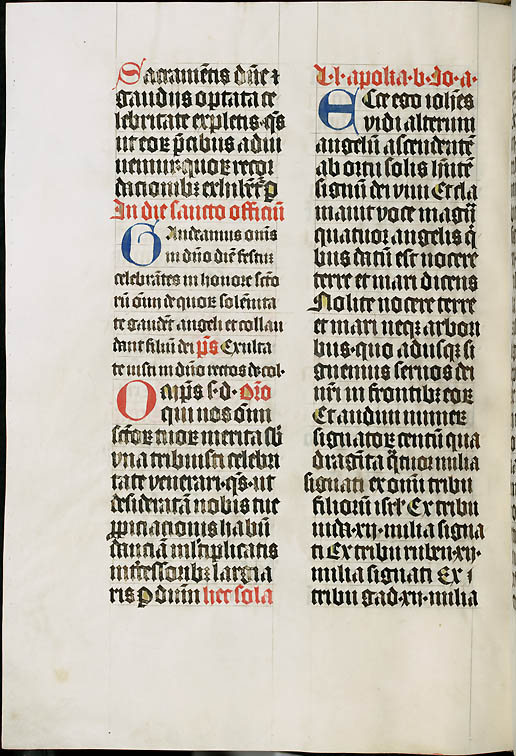 Sacramētis dn̄e ⁊
gaudijs optata ce
lebritate expletis q̄s
ut eoꝝ p̄cibus adiu
uemur quoꝝ recor
dacionibꝫ exhibēt̄ ꝑ
In die sancto officiū
Gaudeamus om̄s
in dn̄o diē festū
celebrātes in honore sct̄o
rū om̄ de quoꝝ solēnita
te gaudēt angeli et collau
dant filiū dei p̄s Exulta
te iusti in dn̄o rectos de·col·
Omp̄s s·d· Or̄o
qui nos om̄
sct̄oꝝ tuoꝝ merita sb̄
vna tribuisti celebri
tate venerari·q̄s·ut
desideratā nobis tue
ꝓpiciacionis habūdanciā
ml̄tiplicatis
int̄cessoribꝫ largia
ris ꝑ dn̄m hec sola
L·l·apoka·b·Io·a·
Ecce ego ioh̄es
vidi alterum
angelū ascendētē
ab ortu solis hn̄tē
signū dei viui Et cla
mauit voce magn̄
quatuor angelis q̄
bus datū est nocere
terre et mari dicens
Nolite nocere terre
et mari neqꝫ arbori
bus·quo adusqꝫ si
gnemus seruos dei
nr̄i in frontibꝫ eoꝝ
Et audiui numeꝝ
signatoꝝ centū qua
dragīta q̄tuor milia
signati ex om̄i tribu
filiorū isrl̄ Ex tribu
iuda·xij·milia signa
ti Ex tribu ruben·xij·
milia signati Ex ⁊
tribu gad·xij·milia